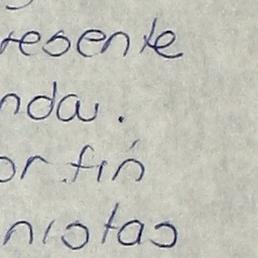 resente
nda.
or fin
nistas